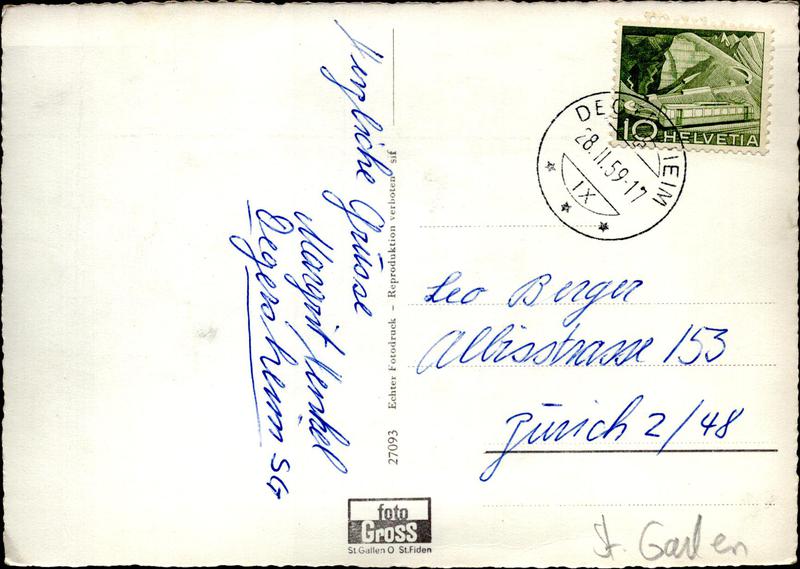 Herzliche Grüsse
Margrit Henkel
Degersheim SG
27093 Echter Fotodruck – Reproduktion verboten sif
foto
Gross
St.Gallen O St.Fiden
10 HELVETIA
DEGERSHEIM
28.II.59-17
IX
Leo Berger
Albisstrasse 153
Zürich 2/48
St. Gallen